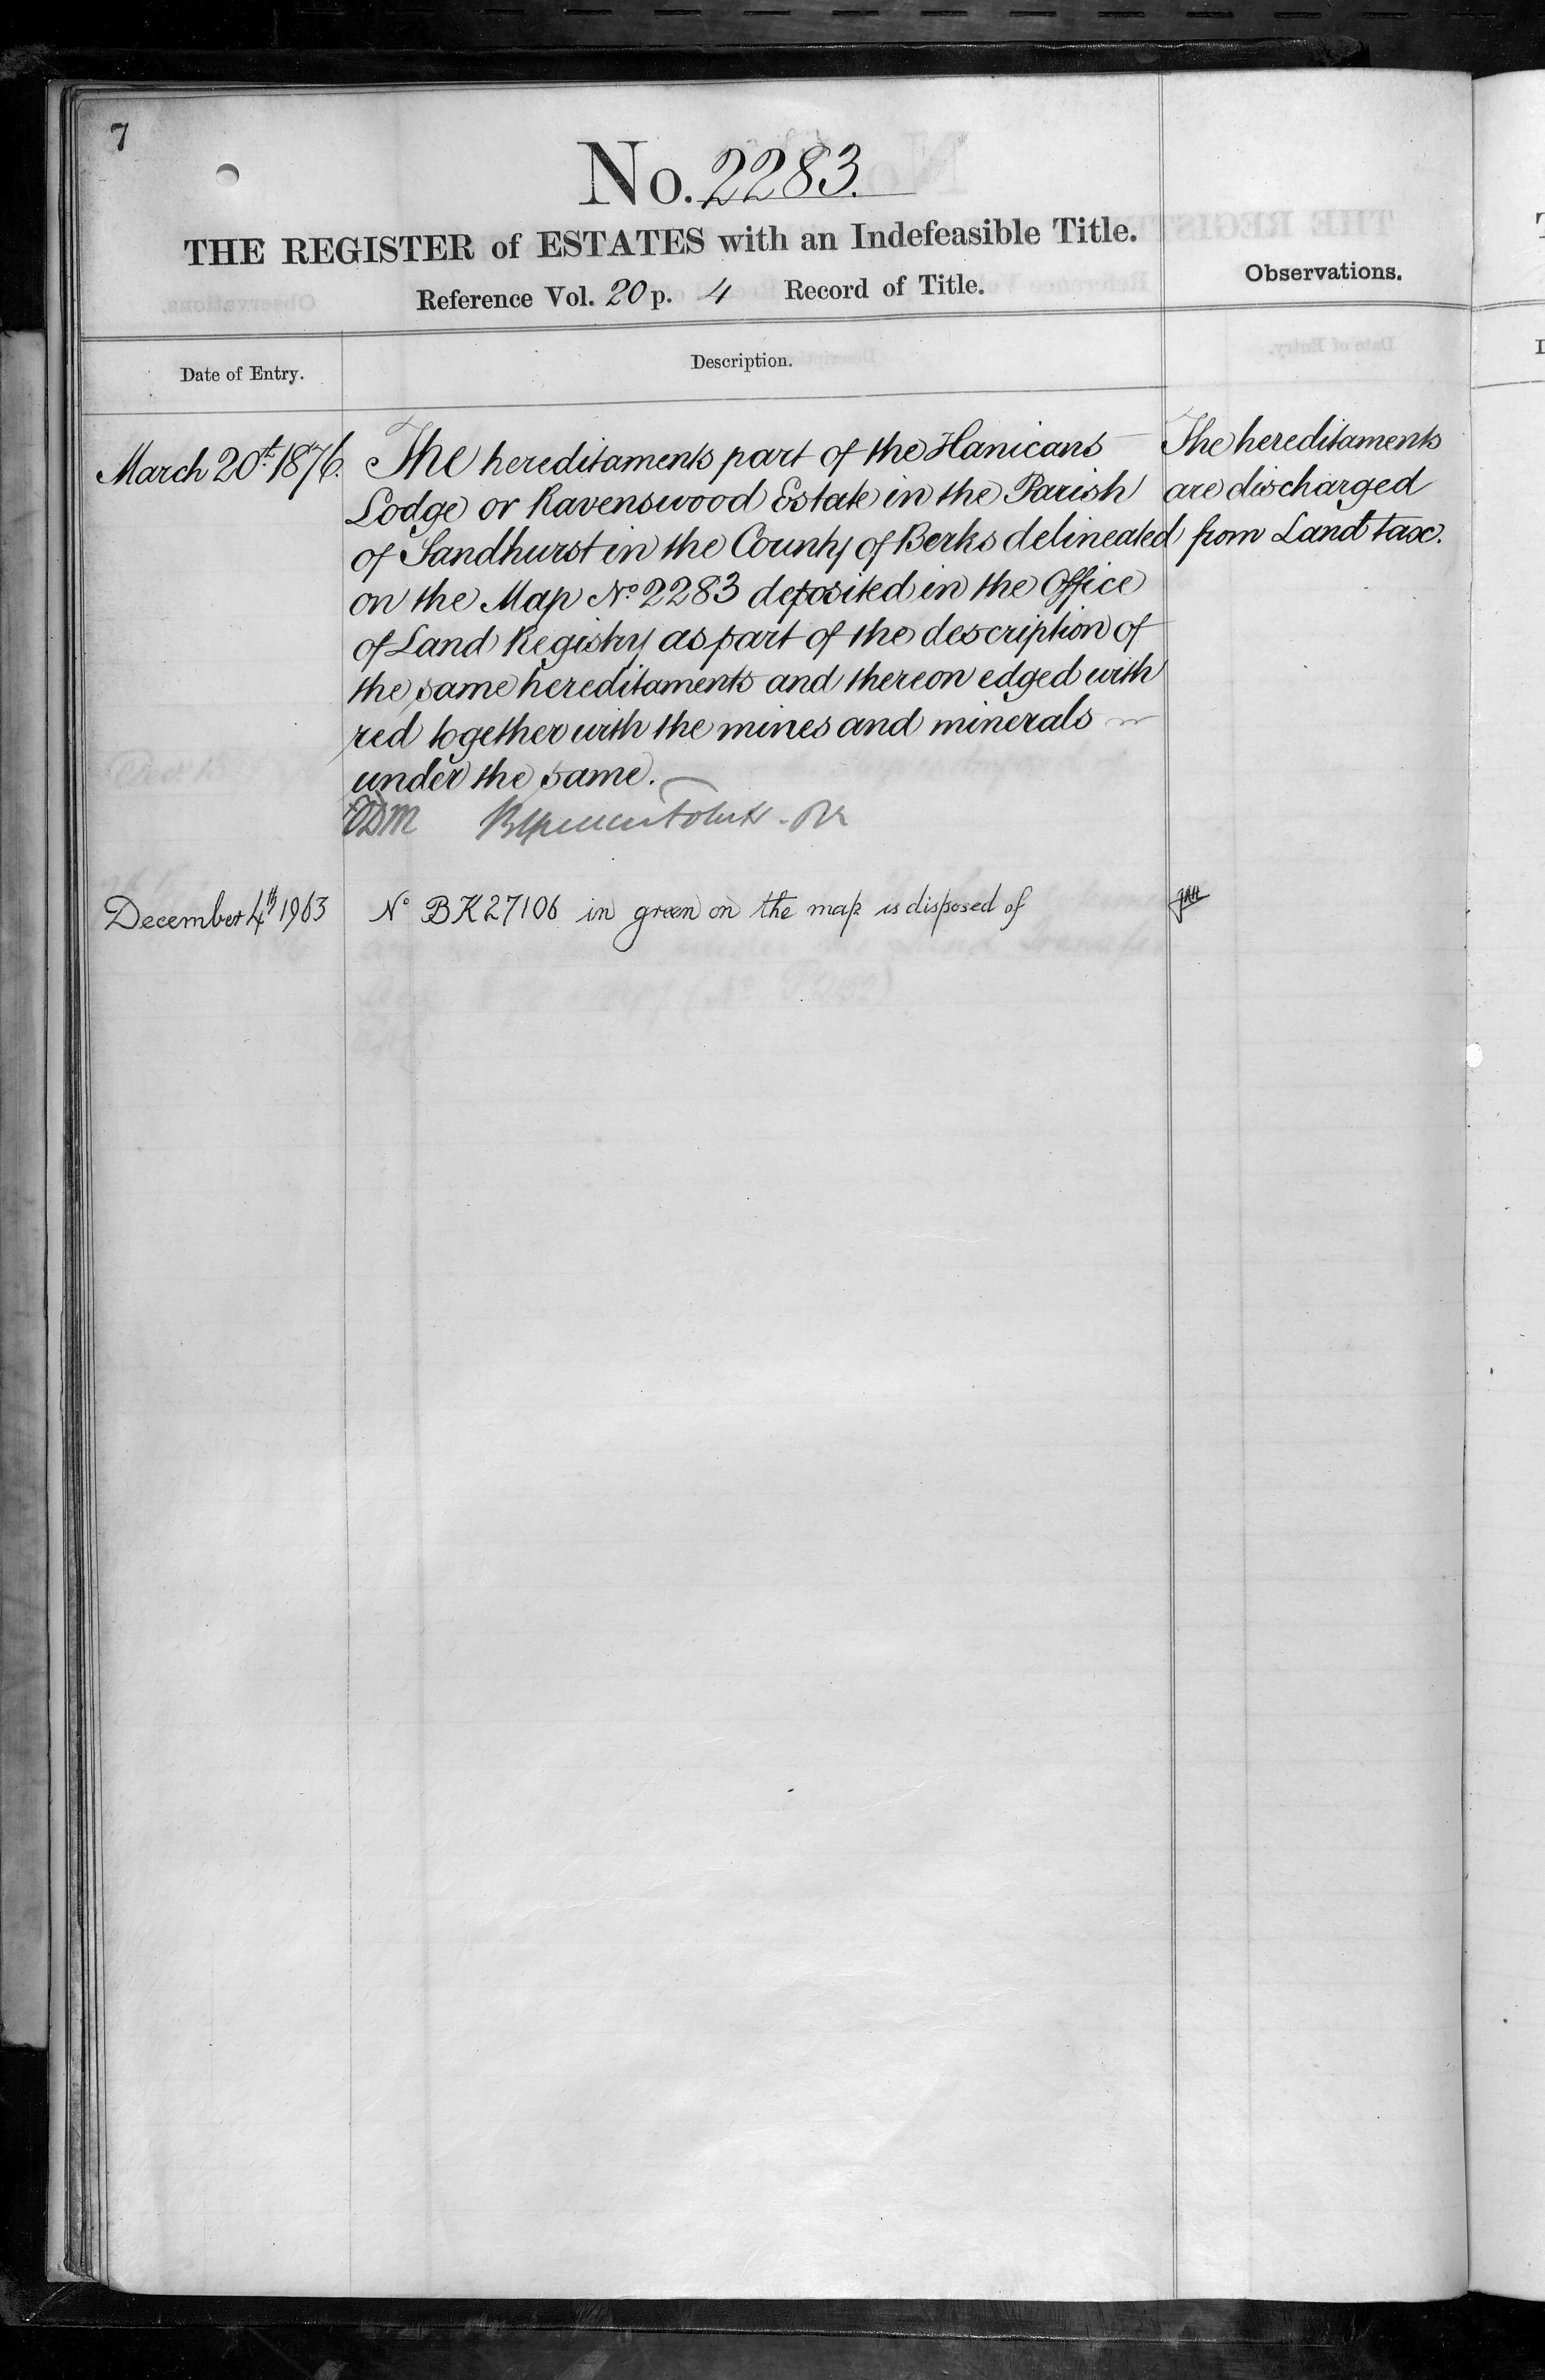 7
No. 2283.
THE REGISTER of ESTATES with an Indefeasible Title.
Reference Vol. 20 p. 4 Record of Title.
Observations.
Date of Entry.
Description.
March 20t. 1876.
The hereditaments part of the Hanicans
Lodge or Ravenswood Estate in the Parish
of Sandhurst in the County of Berks delineated
on the Map No 2283 deposited in the Office
of Land Registry as part of the description of
the same hereditaments and thereon edged with
red together with the mines and minerals
under the same.
The hereditaments
are discharged
from Land tax.
December 4th 1963
No BK27106 in green on the map is disposed of